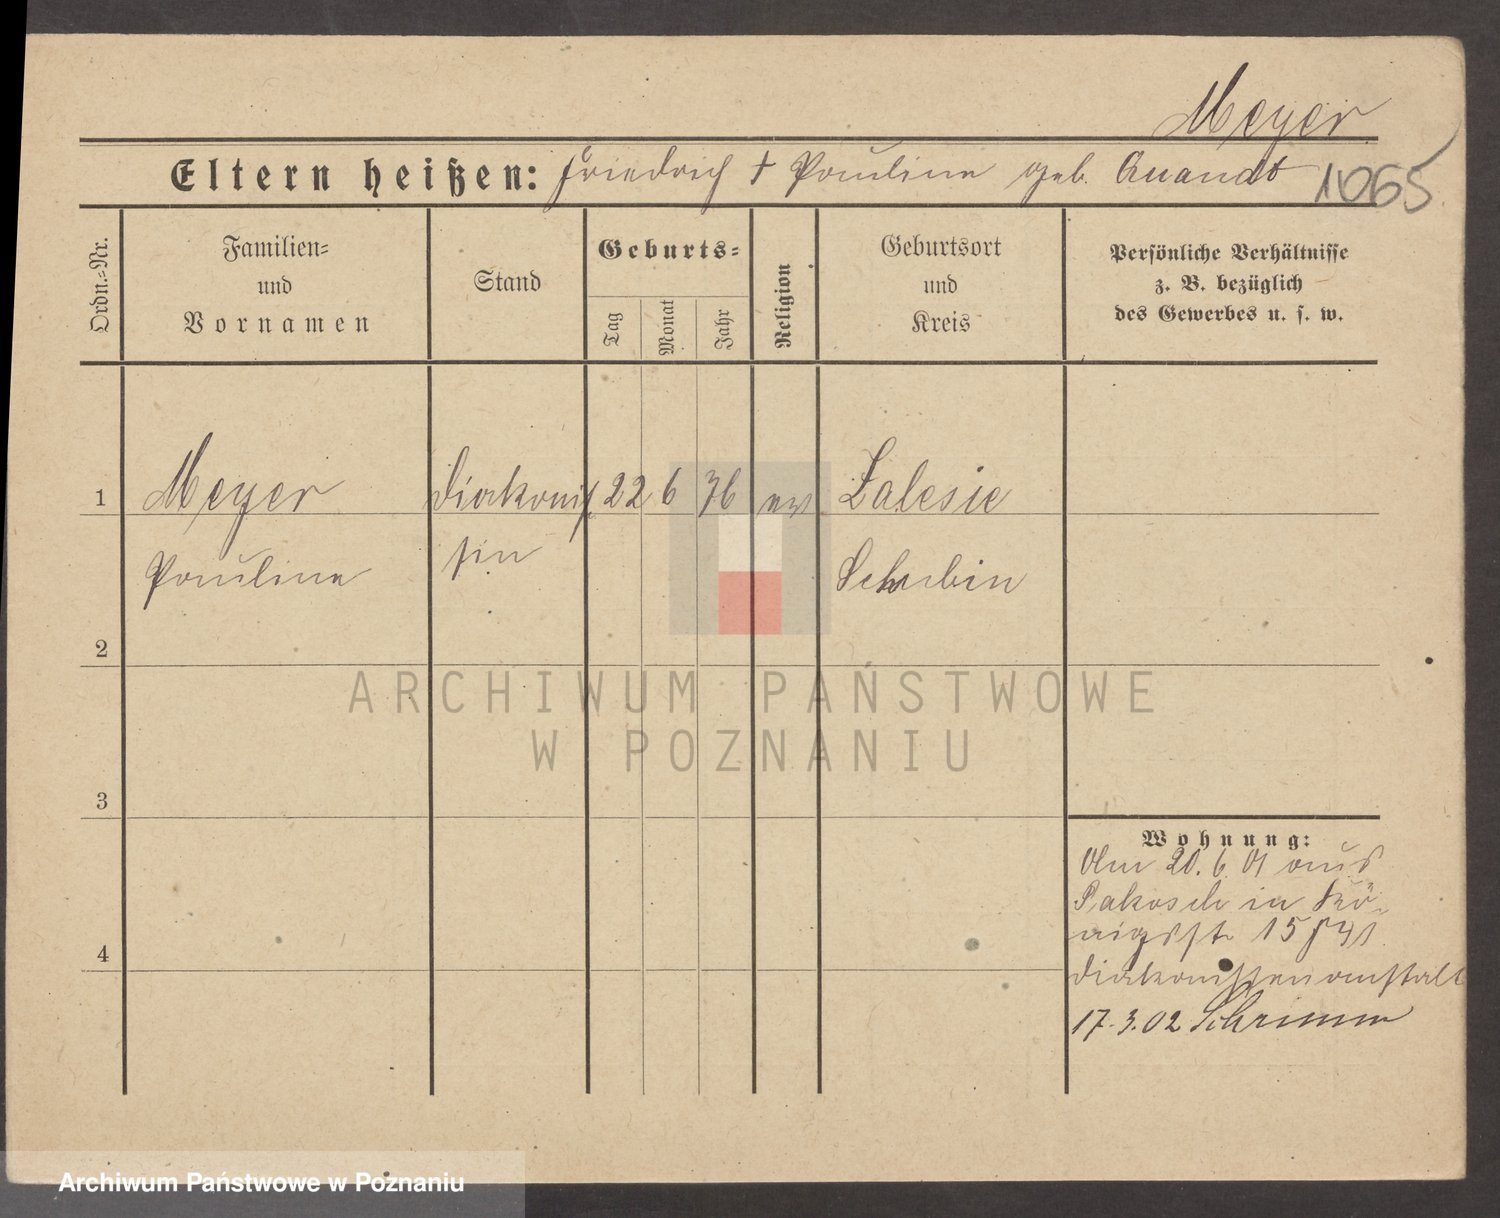 Meyer
Eltern heißen: Friedrich † Pauline geb. Quandt 1065
Ordn.-Nr.
Familien-
und
Vornamen
Stand
Geburts-
Tag
Monat
Jahr
Religion
Geburtsort
und
Kreis
Persönliche Verhältnisse
z. B. bezüglich
des Gewerbes u. s. w.
1 Meyer Diakonis 22 6 76 ev Zalesie
Pauline sin Schubin
2
ARCHIWUM PAŃSTWOWE
W POZNANIU
3
Wohnung:
Am 20.6.01 aus
Pakosch in Kö-
nigsstr 15
4
Diakonissenanstalt
17.3.02 Schrimm
Archiwum Państwowe w Poznaniu